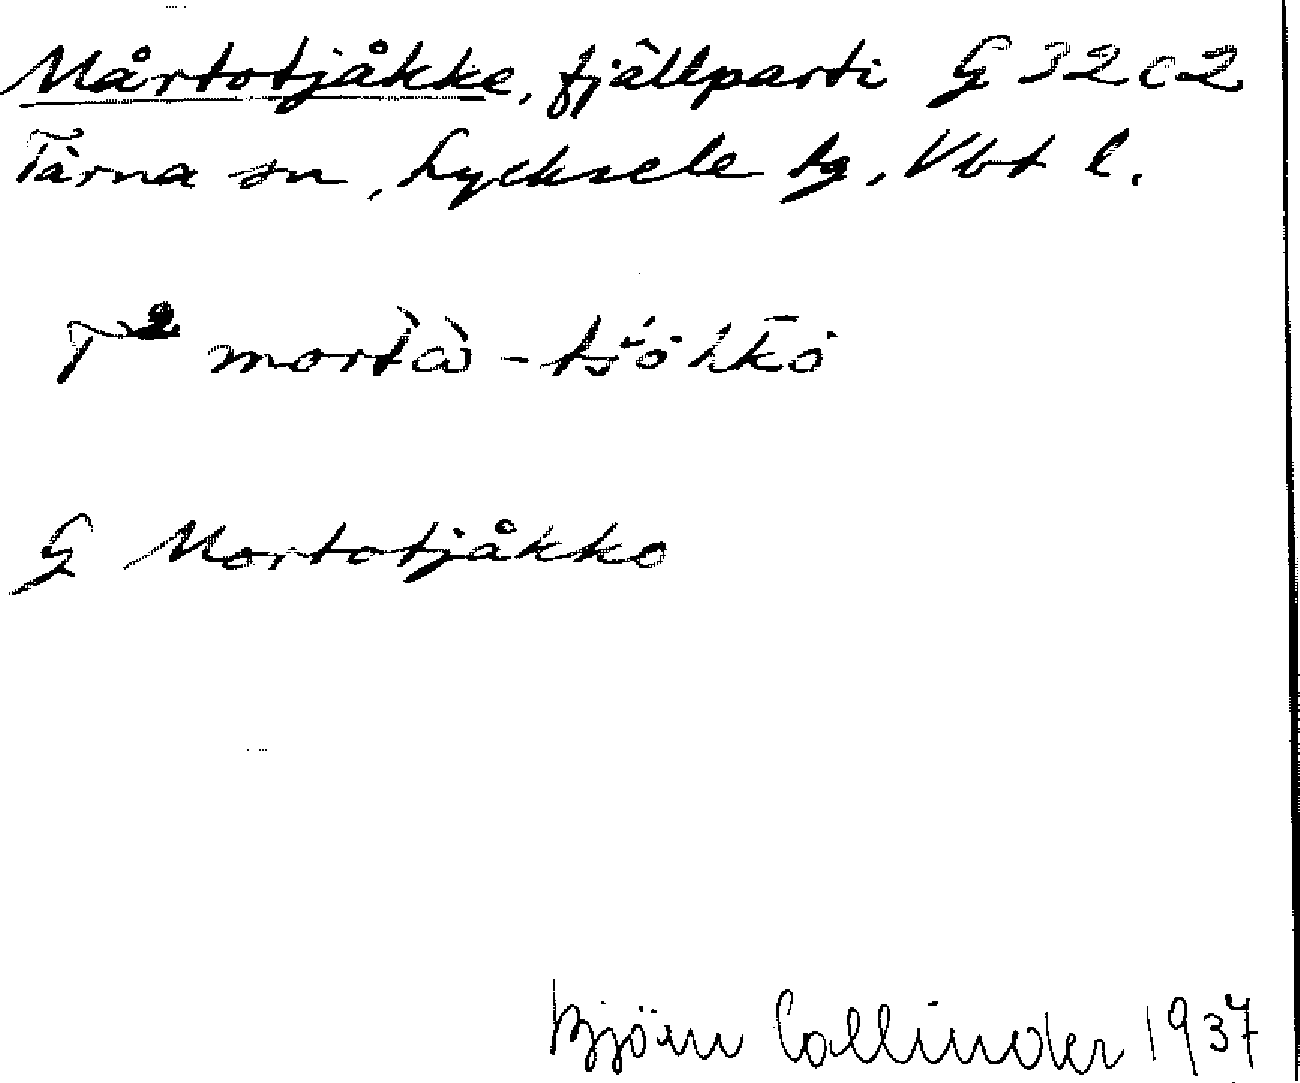 Mårtotjåkke, fjällparti G 32 c 2
Tärna sn, Lycksele tg, Vbt l.
T² mortà - tś́öhkö
G Mortotjåkko
Björn Collinder 1937